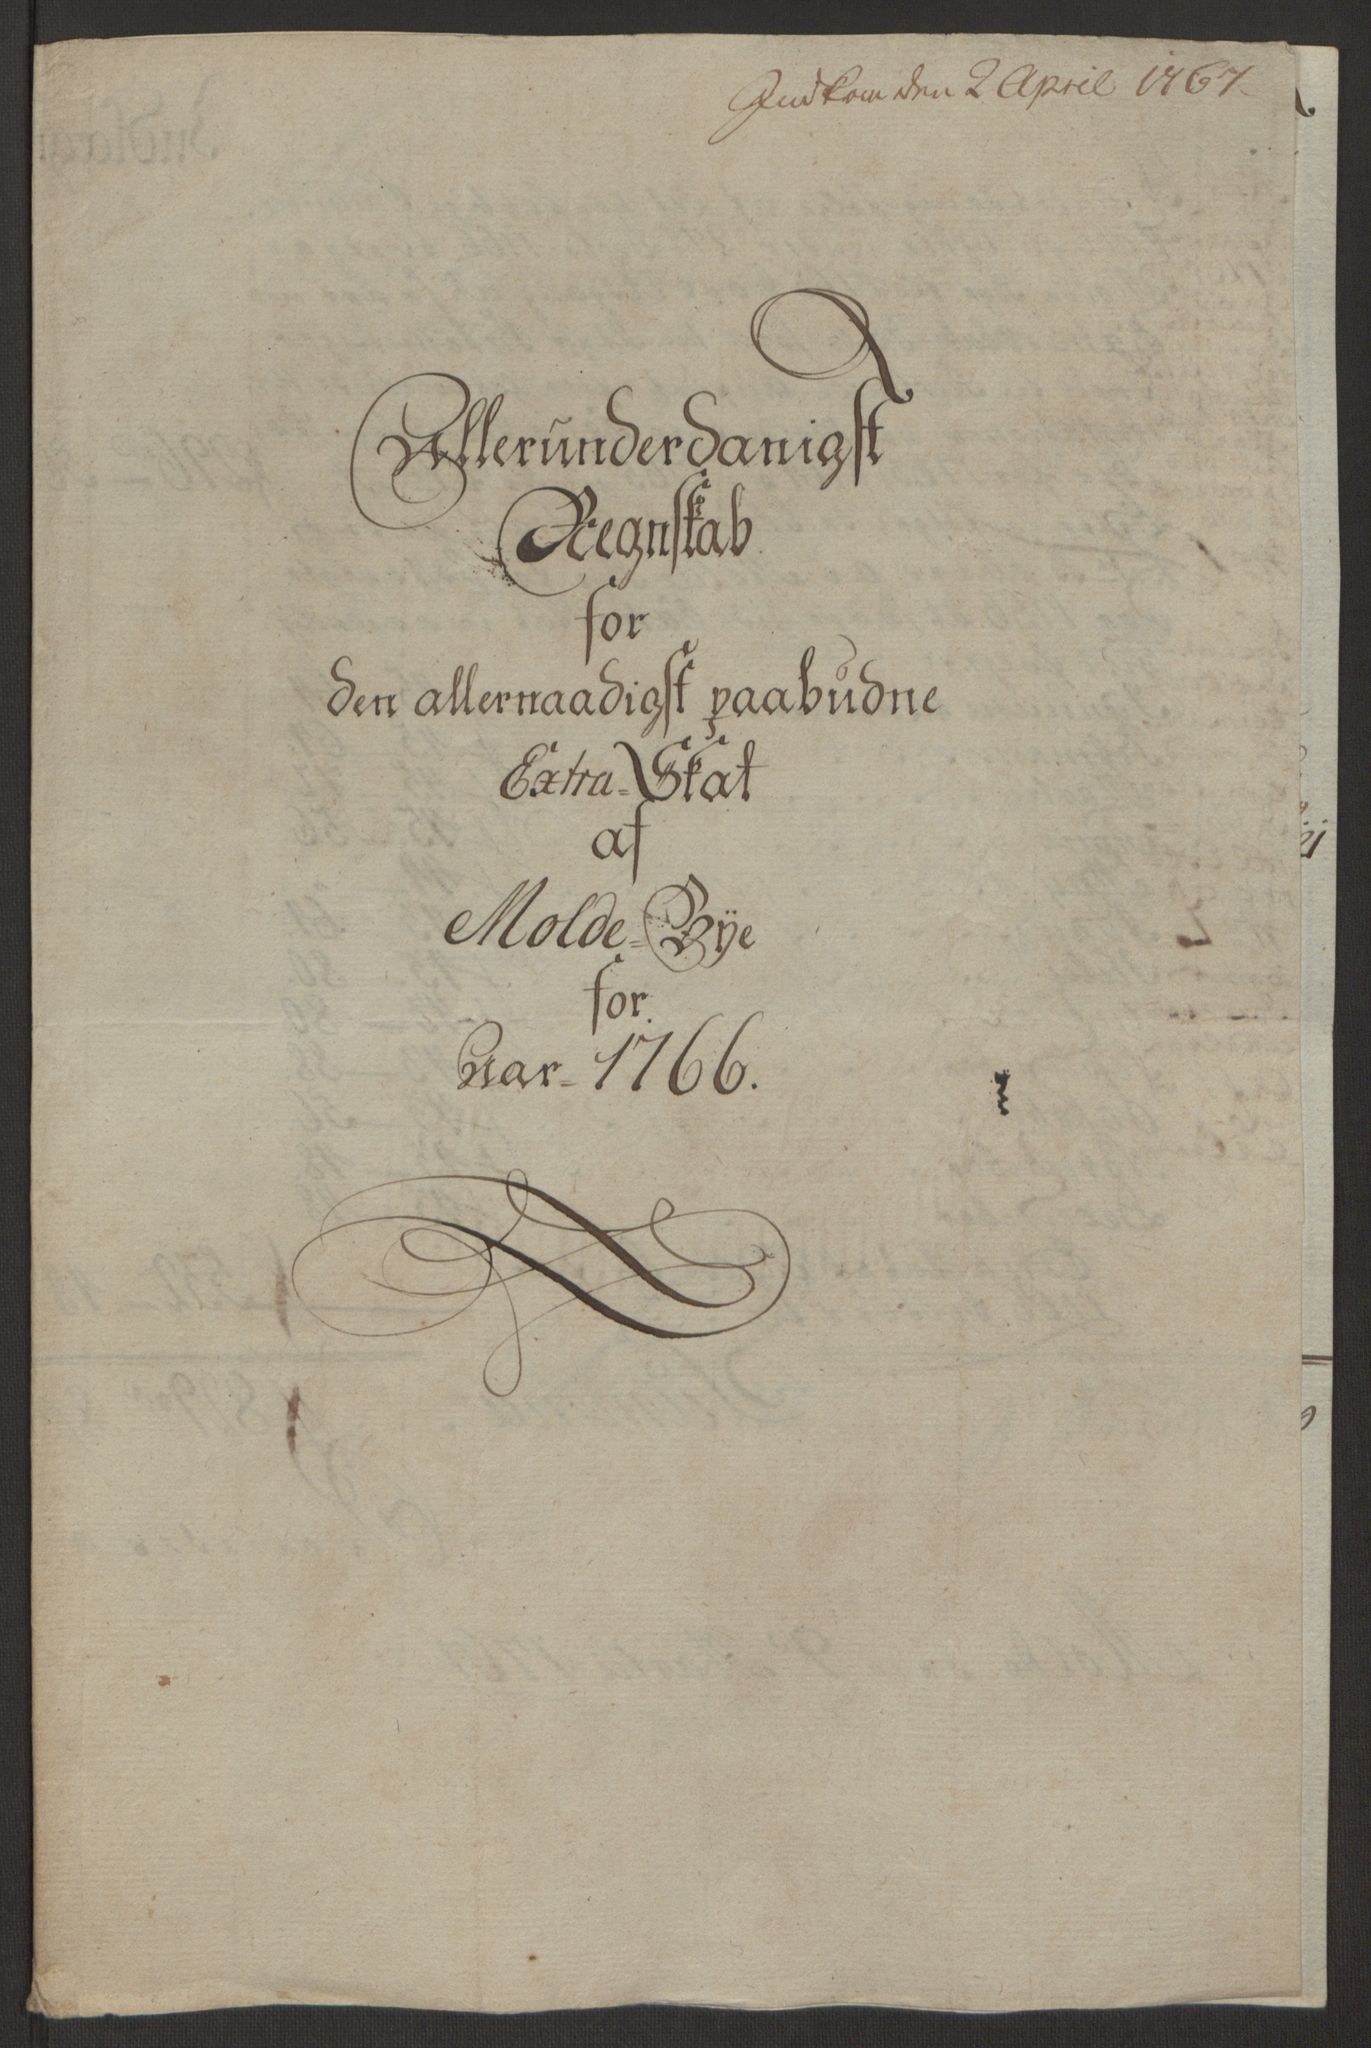 Indkom den 2 April 1767.
Allerunderdanigst
Regnskab
for
den allernaadigst paabudne
Extra-Skat
af
Molde-Bÿe
for
Aar-1766.